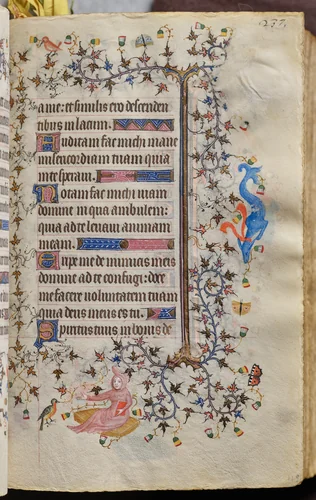 a me: et similis ero descenden
tibus in lacum.
Auditam fac michi mane
misericordiam tuam quia
in te speravi.
Notam fac michi viam
domine in qua ambulem:
quia ad te levavi animam
meam.
Eripe me de inimicis meis
domine ad te confugi: doce
me facere voluntatem tuam
quia deus meus es tu.
Spiritus tuus in bonis de